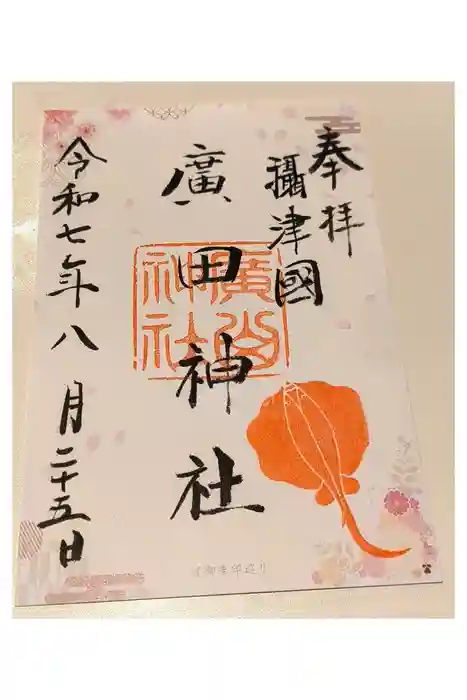 奉拝
攝津國
廣田神社
令和七年八月二十五日